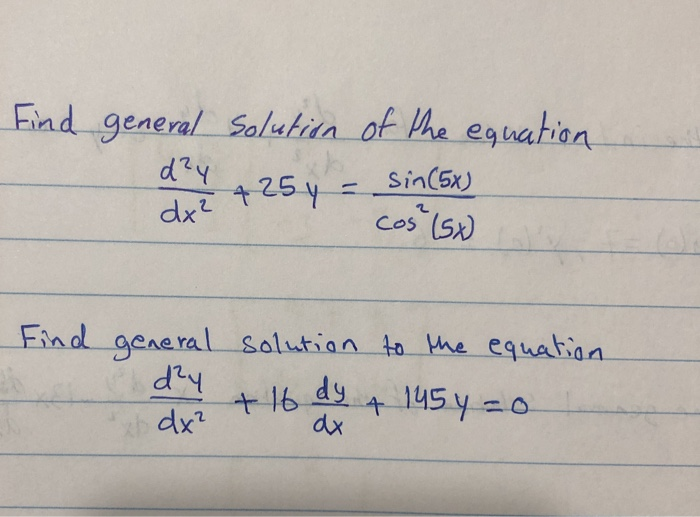 Find general solution of the equation
d²y/dx² + 25y = sin(5x)/cos²(5x)
Find general solution to the equation
d²y/dx² + 16 dy/dx + 145y = 0